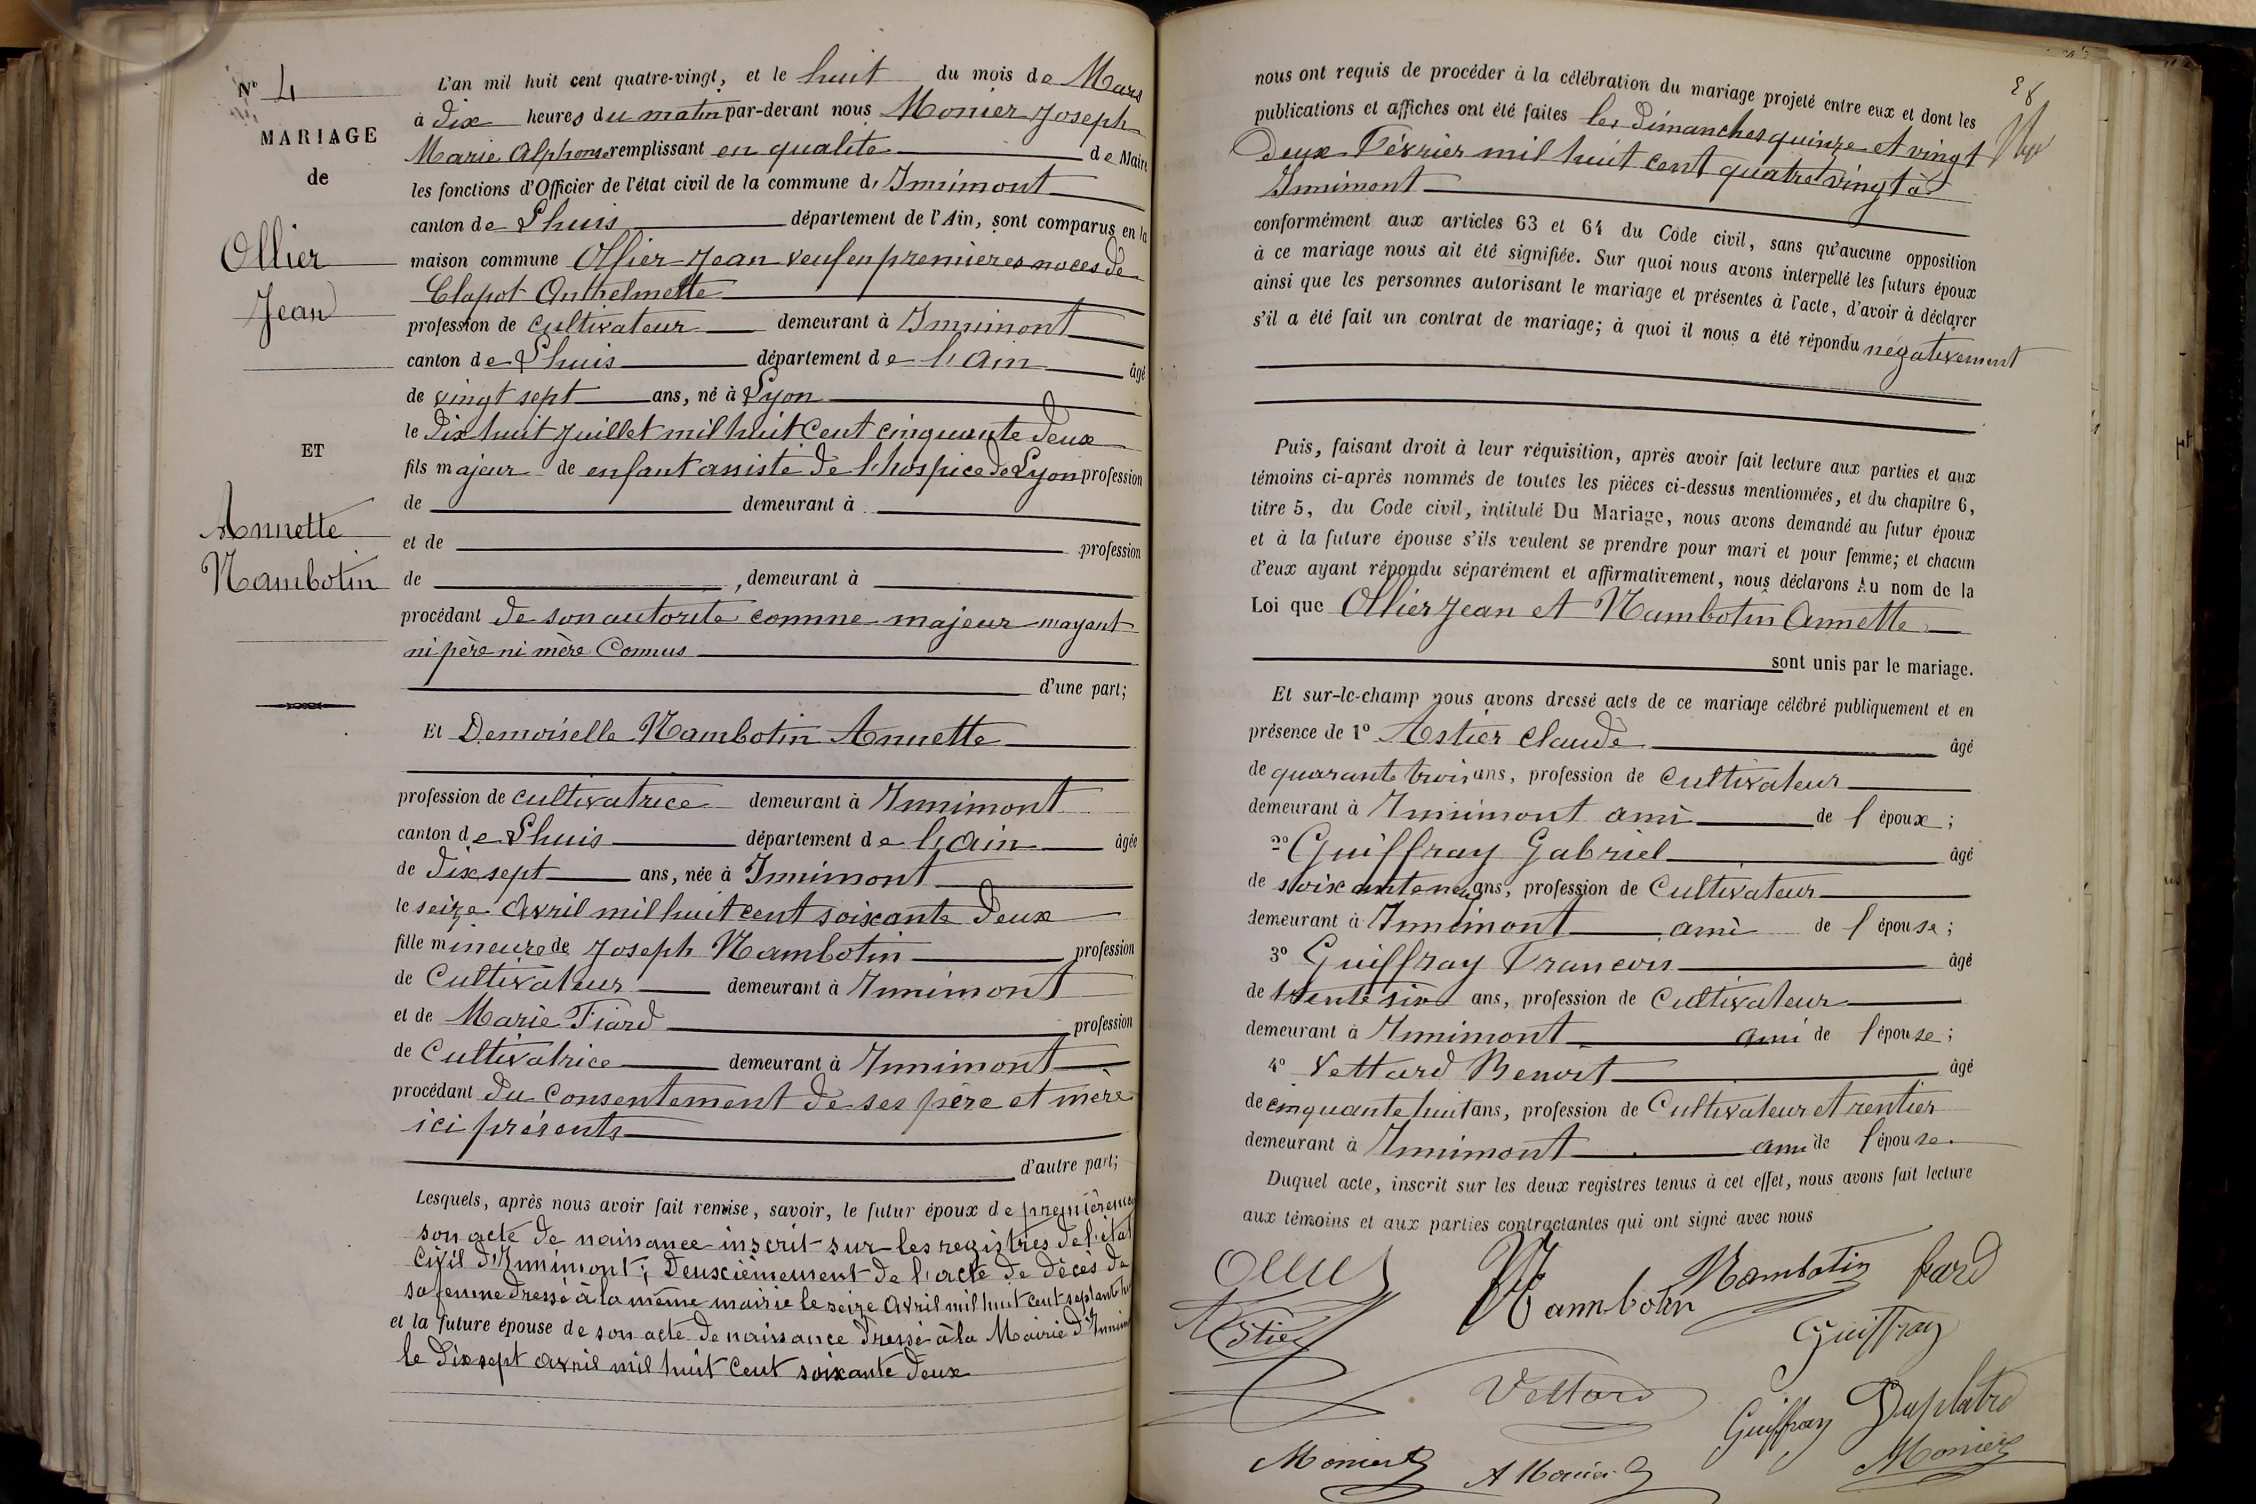 N° 4
MARIAGE
de
Ollier
Jean
ET
Annette
Nambotin
L'an mil huit cent quatre-vingt, et le huit du mois de Mars
à dix heures du matin par-devant nous Monier Joseph
Marie Alphonse remplissant en qualité de Maire
les fonctions d'Officier de l'état civil de la commune d'Innimont
canton de Lhuis département de l'Ain, sont comparus en la
maison commune Ollier Jean veuf en premières noces de
Clapot Anthelmette
profession de cultivateur demeurant à Innimont
canton de Lhuis département de l'Ain âgé
de vingt sept ans, né à Lyon
le dix huit Juillet mil huit cent cinquante deux
fils majeur de enfant assisté de l'hospice de Lyon profession
de demeurant à
et de profession
de , demeurant à
procédant de son autorité comme majeur n'ayant
ni père ni mère Connus
d'une part;
Et Demoiselle Nambotin Annette
profession de cultivatrice demeurant à Innimont
canton de Lhuis département de l'Ain âgée
de dix sept ans, née à Innimont
le seize Avril mil huit cent soixante deux
fille mineure de Joseph Nambotin profession
de Cultivateur demeurant à Innimont
et de Marie Fiard profession
de Cultivatrice demeurant à Innimont
procédant du Consentement de ses père et mère
ici présents
d'autre part;
Lesquels, après nous avoir fait remise, savoir, le futur époux de premièrement
son acte de naissance inscrit sur les registres de l'état
civil d'Innimont; Deuscièmement de l'acte de décès de
sa femme dressé à la même mairie le seize Avril mil huit cent septante
et la future épouse de son acte de naissance dressé à la Mairie d'Innimont
le dix sept avril mil huit cent soixante deux
28
nous ont requis de procéder à la célébration du mariage projeté entre eux et dont les
publications et affiches ont été faites les dimanches quinze et vingt
deux Février mil huit cent quatre vingt à
Innimont
conformément aux articles 63 et 64 du Code civil, sans qu'aucune opposition
à ce mariage nous ait été signifiée. Sur quoi nous avons interpellé les futurs époux
ainsi que les personnes autorisant le mariage et présentes à l'acte, d'avoir à déclarer
s'il a été fait un contrat de mariage; à quoi il nous a été répondu négativement
Puis, faisant droit à leur réquisition, après avoir fait lecture aux parties et aux
témoins ci-après nommés de toutes les pièces ci-dessus mentionnées, et du chapitre 6,
titre 5, du Code civil, intitulé Du Mariage, nous avons demandé au futur époux
et à la future épouse s'ils veulent se prendre pour mari et pour femme; et chacun
d'eux ayant répondu séparément et affirmativement, nous déclarons Au nom de la
Loi que Ollier Jean et Nambotin Annette
sont unis par le mariage.
Et sur-le-champ nous avons dressé acte de ce mariage célébré publiquement et en
présence de 1° Astier Claude âgé
de quarante trois ans, profession de Cultivateur
demeurant à Innimont ami de l'époux;
2° Guiffray Gabriel âgé
de soixante neuf ans, profession de Cultivateur
demeurant à Innimont ami de l'épouse;
3° Guiffray Francois âgé
de trente six ans, profession de Cultivateur
demeurant à Innimont ami de l'épouse;
4° Vettard Benoit âgé
de cinquante huit ans, profession de Cultivateur et rentier
demeurant à Innimont ami de l'épouse.
Duquel acte, inscrit sur les deux registres tenus à cet effet, nous avons fait lecture
aux témoins et aux parties contractantes qui ont signé avec nous
Ollier Nambotin Nambotin fiard
Astier Guiffray
Vettard Guiffray Duplatre
Monier A Monier Monier